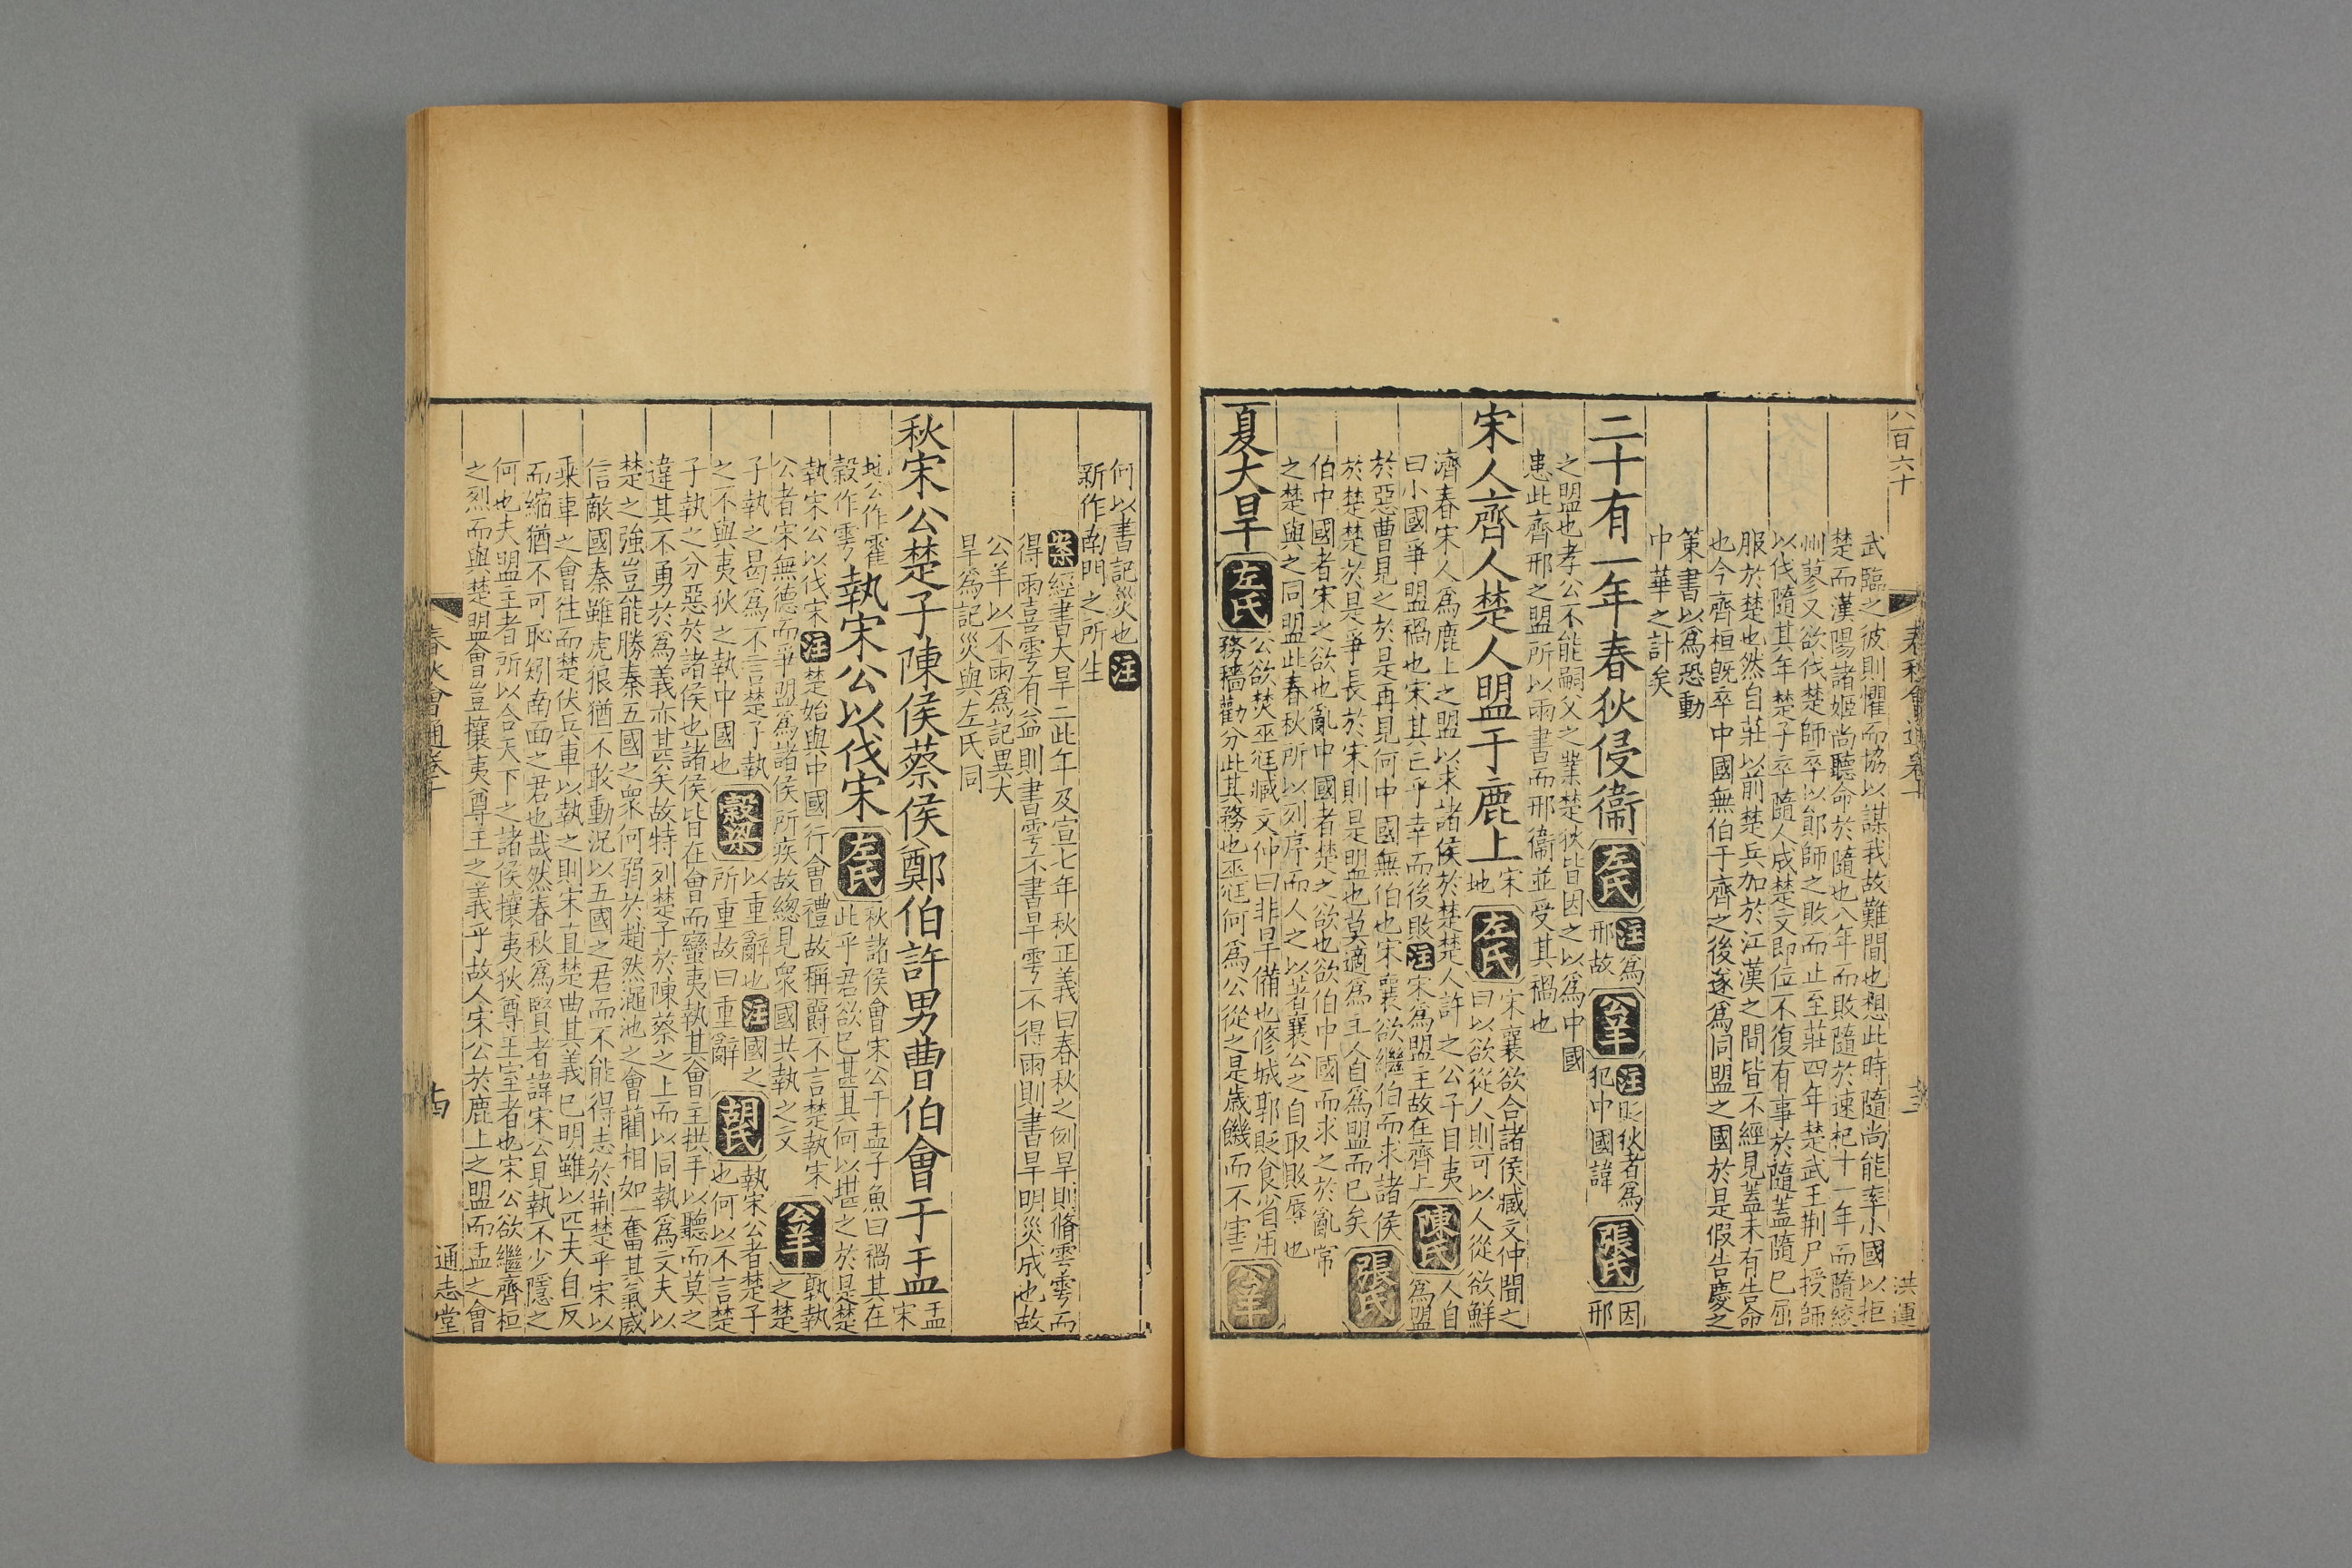 八百六十
春秋會通卷十
洪運
武臨之彼則懼而協以謀我故難間也想此時隨尚能率小國以拒
楚而漢陽諸姬尚聽命於隨也八年而敗隨於速杞十一年而隨絞
州蓼又欲伐楚師卒以鄖師之敗而止至莊四年楚武王荆尸授師
以伐隨其年楚子卒隨人成楚文即位不復有事於隨蓋隨已屈
服於楚也然自莊以前楚兵加於江漢之間皆不經見蓋未有告命
也今齊桓旣卒中國無伯于齊之後遂爲同盟之國於是假告慶之
策書以爲恐動
中華之計矣
二十有一年春狄侵衞左氏注爲邢故公羊注貶狄者爲犯中國諱張氏因邢
之盟也孝公不能嗣父之業楚狄皆因之以爲中國
患此齊邢之盟所以兩書而邢衞並受其禍也
宋人齊人楚人盟于鹿上宋地左氏宋襄欲合諸侯臧文仲聞之
曰以欲從人則可以人從欲鮮
濟春宋人爲鹿上之盟以求諸侯於楚楚人許之公子目夷
曰小國爭盟禍也宋其亡乎幸而後敗注宋爲盟主故在齊上陳氏人自爲盟
於惡曹見之於是再見何中國無伯也宋襄欲繼伯而求諸侯
於楚楚於是爭長於宋則是盟也莫適爲主人自爲盟而已矣張氏
伯中國者宋之欲也亂中國者楚之欲也欲伯中國而求之於亂常
之楚與之同盟此春秋所以列序而人之以著襄公之自取敗辱也
夏大旱左氏公欲焚巫尫臧文仲曰非旱備也修城郭貶食省用
務穡勸分此其務也巫尫何爲公從之是歲饑而不害公羊
何以書記災也注
新作南門之所生
紫經書大旱二此年及宣七年秋正義曰春秋之例旱則脩雩雩而
得雨喜雩有益則書雩不書旱雩不得雨則書旱明災成也故
公羊以不雨爲記異大
旱爲記災與左氏同
秋宋公楚子陳侯蔡侯鄭伯許男曹伯會于盂盂宋
地公作霍
穀作雩執宋公以伐宋左氏秋諸侯會宋公于盂子魚曰禍其在
此乎君欲已甚其何以堪之於是楚
執宋公以伐宋注楚始與中國行會禮故稱爵不言楚執宋公羊孰執
公者宋無德而爭盟爲諸侯所疾故總見衆國共執之文之楚
子執之曷爲不言楚子執
之不與夷狄之執中國也穀梁以重辭也注國之
所重故曰重辭胡氏執宋公者楚子
也何以不言楚
子執之分惡於諸侯也諸侯皆在會而蠻夷執其會主拱手以聽而莫之
違其不勇於爲義亦甚矣故特列楚子於陳蔡之上而以同執爲文夫以
楚之強豈能勝秦五國之衆何弱於趙然澠池之會藺相如一奮其氣威
信敵國秦雖虎狼猶不敢動況以五國之君而不能得志於荆楚乎宋以
乘車之會往而楚伏兵車以執之則宋直楚曲其義已明雖以匹夫自反
而縮猶不可恥矧南面之君也哉然春秋爲賢者諱宋公見執不少隱之
何也夫盟主者所以合天下之諸侯攘夷狄尊王室者也宋公欲繼齊桓
之烈而與楚盟會豈攘夷尊王之義乎故人宋公於鹿上之盟而盂之會
春秋會通卷十
古
通志堂